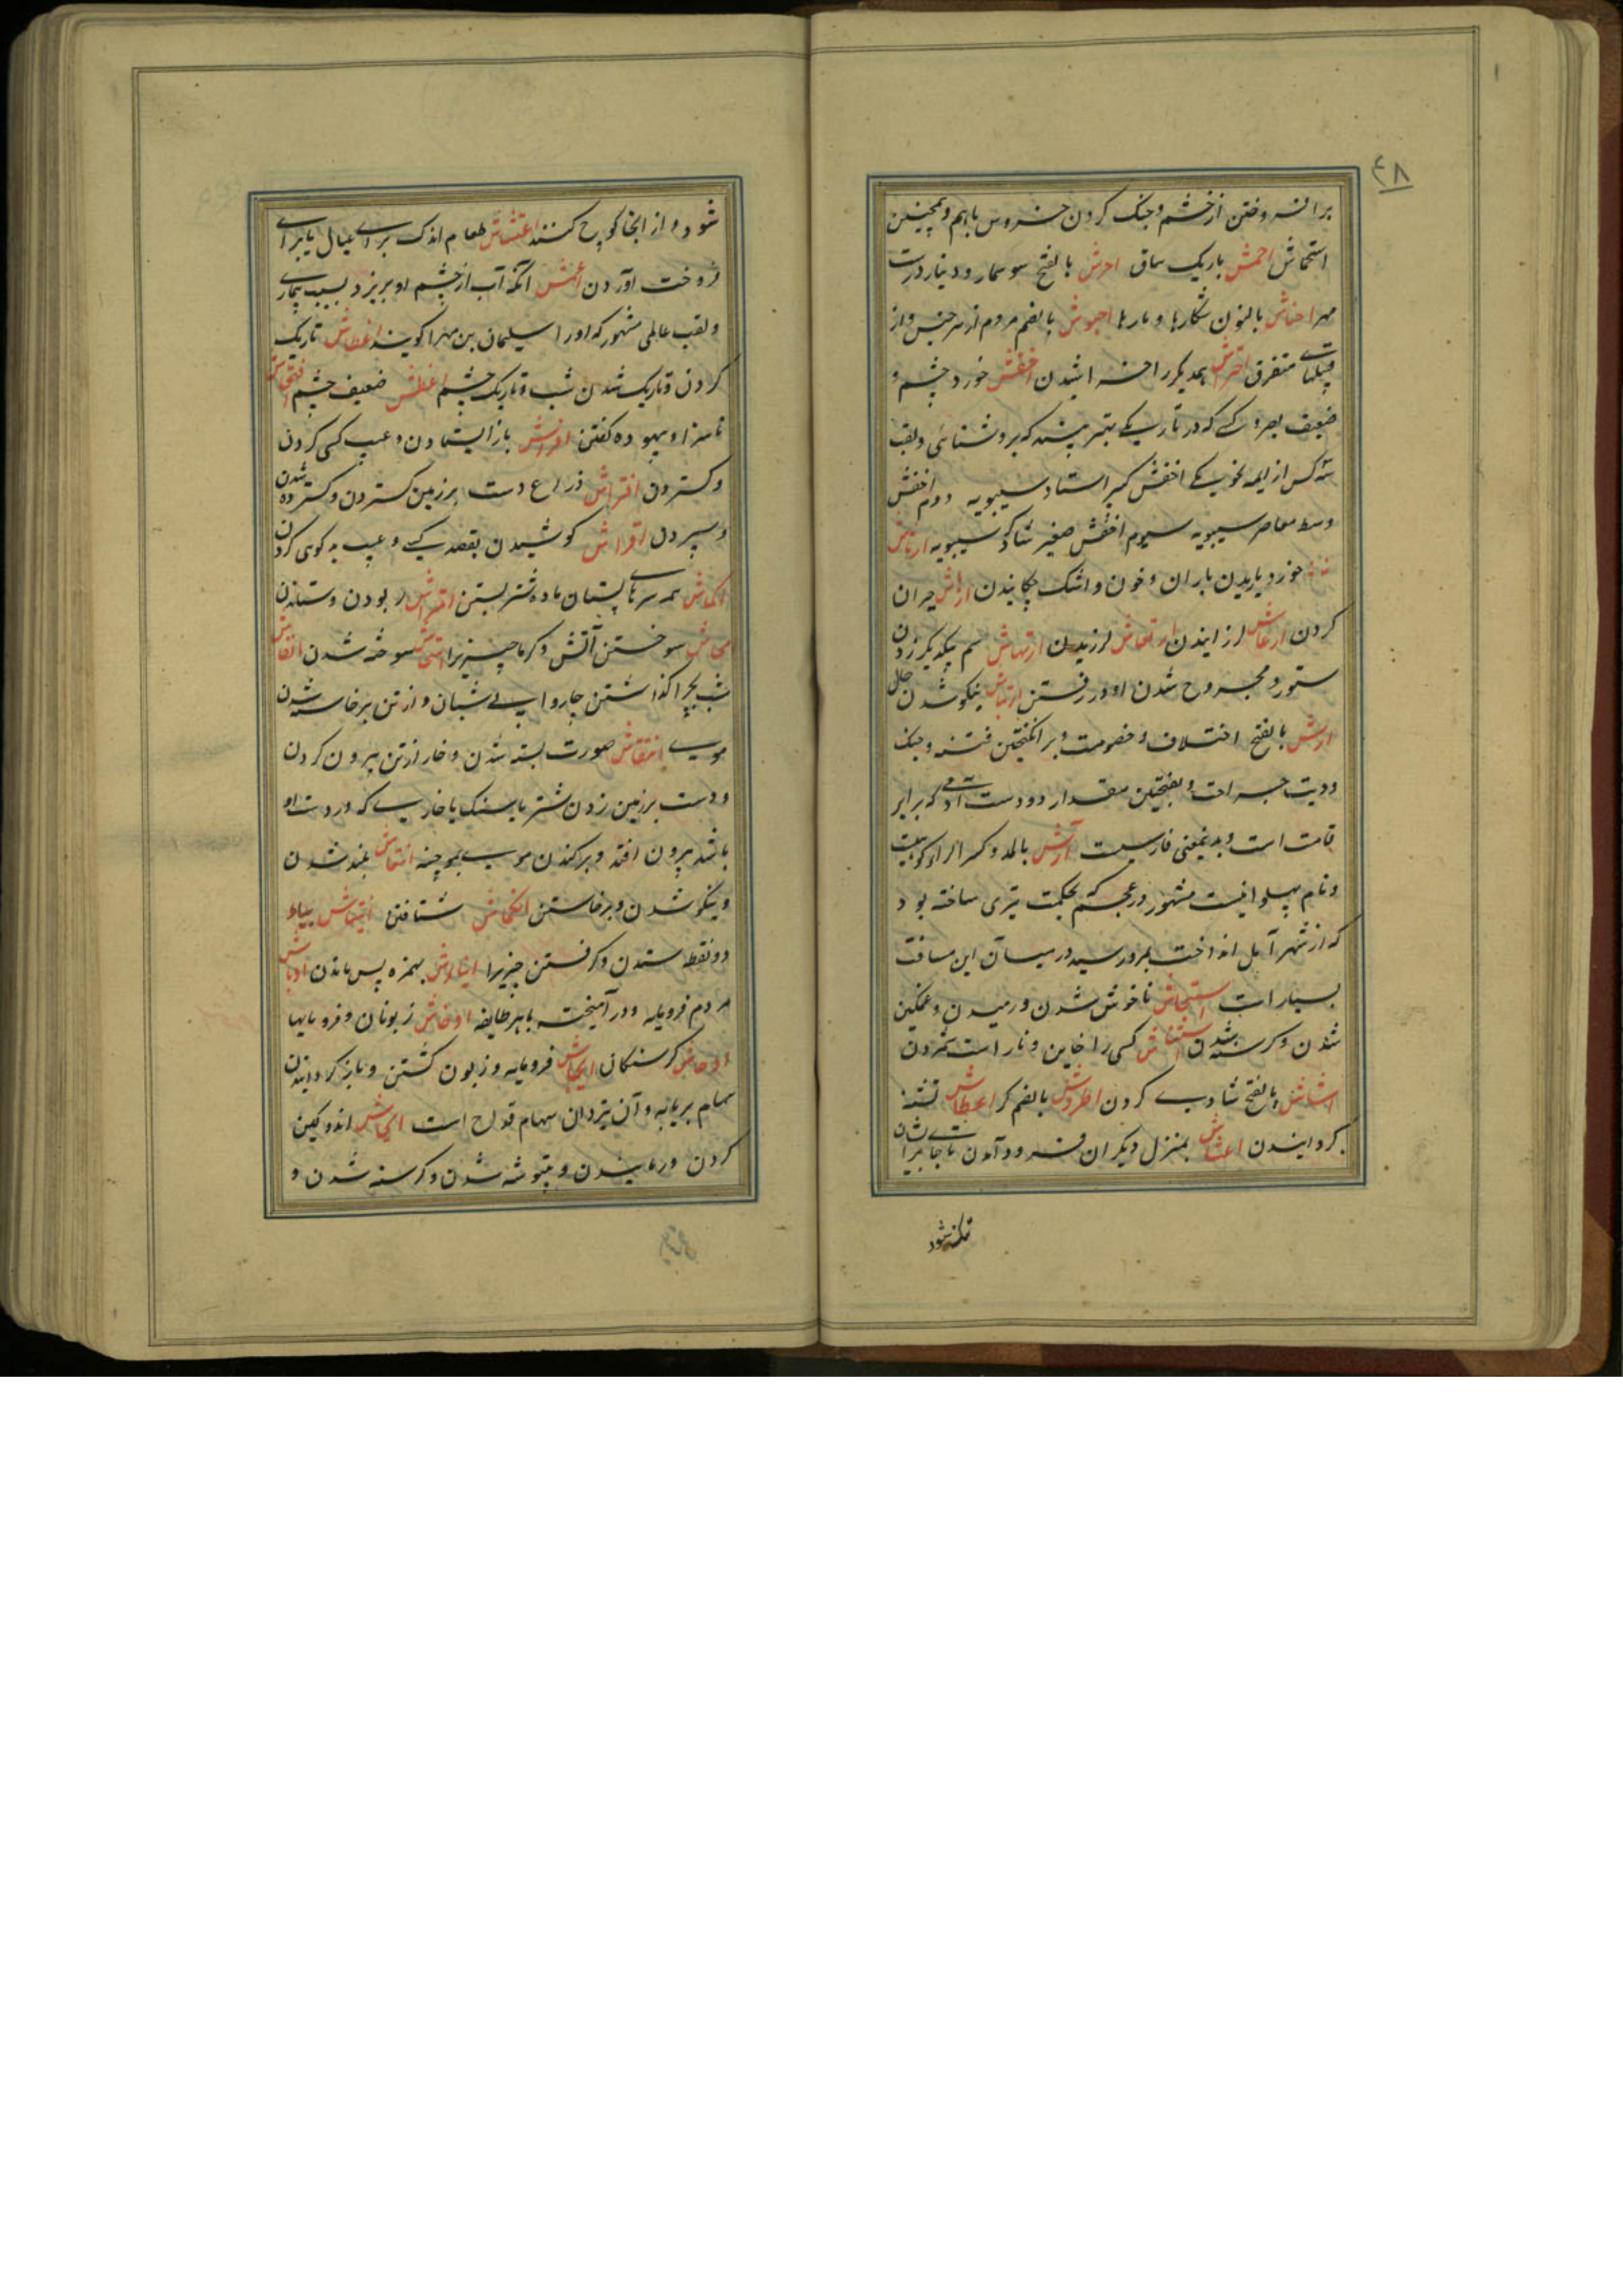 ۴۸
برافروختن از خشم و جنک کردن خروس باهم و همچنین
استحماش احمش باریک ساق احرش بالفتح سوسمار و دینار درست
مهر احناش بالنون شکارها و مارها احبوش بالضم مردم از هر جنس و از
قبیلهای متفرق احتراش یکدیکر را خراشیدن اخفش خورد چشم و
ضعیف بصر و کسی که در تاریکی بهتر بیند که بروشنائی و لقب
سه کس از ایمه نحو یکی اخفش کبیر استاد سیبویه دوم اخفش
وسط معاصر سیبویه سیوم اخفش صغیر شاکرد سیبویه ارشاش
خورد باریدن باران و خون و اشک چکانیدن ارهاش حیران
کردن ارعاش لرزانیدن ارتعاش لرزیدن ارتهاش سم بیکدیکر زدن
ستور و مجروح شدن او در رفتن ارتیاش نیکو شدن حال
ارش بالفتح اختلاف و خصومت و برانکیختن فتنه و جنک
و دیت جراحت و بفتحتین مقدار دو دست آدمی که برابر
قامت است و بدینمعنی فارسیست آرش بالمد و کسر الرا
و نام پهلوانیست مشهور در عجم که بحکمت تیری ساخته بود
که از شهر آمل انداخت بمرو رسید و در میان آن این مسافت
بسیار است استیحاش ناخوش شدن و رمیدن و غمکین
شدن و کرسنه شدن استغشاش کسی را خاین و ناراست شمردن
اشاش بالفتح شادی کردن اطروش بالضم کر اعطاش تشنه
کردانیدن اعشاش بمنزل دیکران فرود آمدن تا جا بر ایشان
تنک شود
شود و از انجا کوچ کنند اعتشاش طعام اندک برای عیال یا برای
فروخت آوردن اعمش آنکه آب از چشم او بریزد بسبب بیماری
و لقب عالمی مشهور که اورا سلیمان بن مهران کویند اغطاش تاریک
کردن و تاریک شدن شب و تاریک چشم اغطش ضعیف چشم افحاش
ناسزا و بیهوده کفتن افراش باز ایستادن و عیب کسی کردن
و کستردن افتراش ذراع دست بر زمین کستردن و کسترده شدن
و سپردن اقراش کوشیدن بقصد کسی و عیب بدکوی کردن
اکماش همه سرهای پستان ماده شتر بستن امتراش ربودن و ستاندن
امحاش سوختن آتش و کرما چیزیرا امتحاش سوخته شدن انفاش
شب بچرا کذاشتن چاروا بی شبان و از تن برخاسته شدن
موی انتقاش صورت بسته شدن و خار از تن بیرون کردن
و دست بر زمین زدن شتر تا سنک یا خاری که در دست او
باشد بیرون افتد و برکندن موی بموچنه انتعاش بلند شدن
و نیکو شدن و برخاستن انکماش شتافتن انتیاش بیاء
دو نقطه ستدن و کرفتن چیزیرا انتاوش بهمزه پس ماندن اوباش
مردم فرومایه و درآمیخته باهر طایفه اوخاش زبونان و فرومایها
اوحاش کرسنکان ایخاش فرومایه و زبون کشتن و باز کردانیدن
سهام بر یابه و آن تیردان سهام قداح است ایحاش اندوکین
کردن و رمانیدن و بیتوشه شدن و کرسنه شدن و